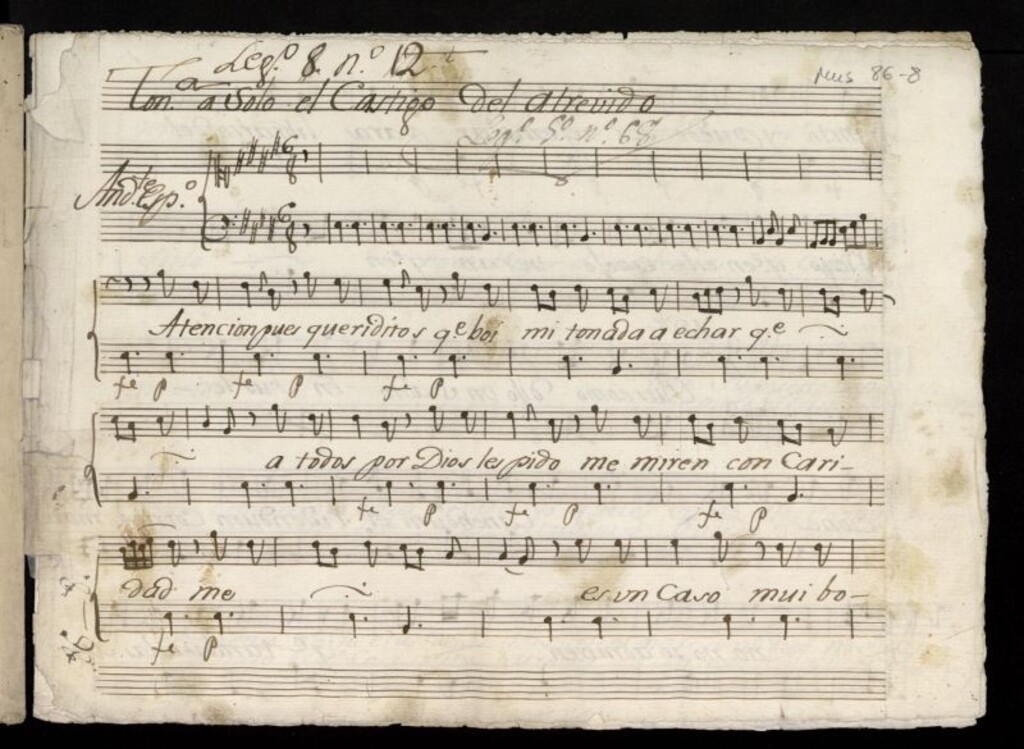 Leg.º 8. n.º 12
Mus 86-8
Ton.ª a Solo el Castigo Del atrevido
Leg.º 5.º n.º 68
And.te Esp.º
Atencion pues queriditos q.e boi mi tonada a echar q.e
fe p fe p fe p
a todos por Dios les pido me miren con Cari-
fe p fe p fe p
dad me es vn Caso mui bo-
fe p